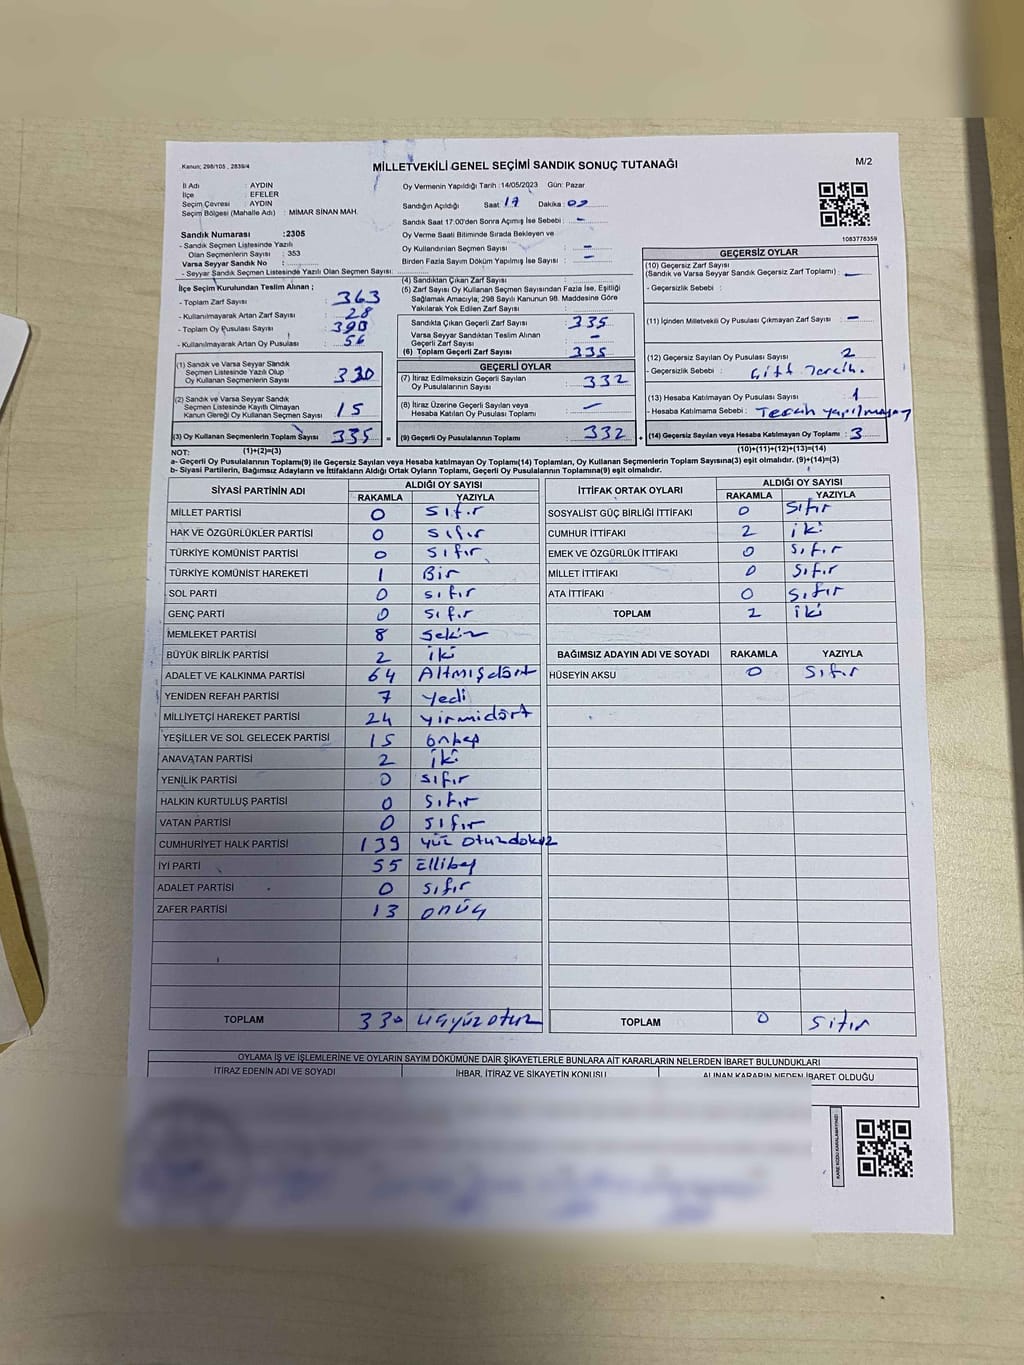 Kanun: 298/105 , 2839/4
MİLLETVEKİLİ GENEL SEÇİMİ SANDIK SONUÇ TUTANAĞI
M/2
İl Adı : AYDIN
İlçe : EFELER
Seçim Çevresi : AYDIN
Seçim Bölgesi (Mahalle Adı) : MİMAR SİNAN MAH.
Sandık Numarası :2305
- Sandık Seçmen Listesinde Yazılı
Olan Seçmenlerin Sayısı : 353
Varsa Seyyar Sandık No :
- Seyyar Sandık Seçmen Listesinde Yazılı Olan Seçmen Sayısı:
Oy Vermenin Yapıldığı Tarih :14/05/2023 Gün: Pazar
Sandığın Açıldığı Saat: 17 Dakika: 09
Sandık Saat 17.00'den Sonra Açılmış İse Sebebi : -
Oy Verme Saati Bitiminde Sırada Bekleyen ve
Oy Kullandırılan Seçmen Sayısı : -
Birden Fazla Sayım Döküm Yapılmış İse Sayısı : -
1083778359
İlçe Seçim Kurulundan Teslim Alınan ;
- Toplam Zarf Sayısı : 363
- Kullanılmayarak Artan Zarf Sayısı : 28
- Toplam Oy Pusulası Sayısı : 390
- Kullanılmayarak Artan Oy Pusulası : 56
(1) Sandık ve Varsa Seyyar Sandık
Seçmen Listesinde Yazılı Olup
Oy Kullanan Seçmenlerin Sayısı : 320
(2) Sandık ve Varsa Seyyar Sandık
Seçmen Listesinde Kayıtlı Olmayan
Kanun Gereği Oy Kullanan Seçmen Sayısı : 15
(3) Oy Kullanan Seçmenlerin Toplam Sayısı : 335
(4) Sandıktan Çıkan Zarf Sayısı :
(5) Zarf Sayısı Oy Kullanan Seçmen Sayısından Fazla İse, Eşitliği
Sağlamak Amacıyla; 298 Sayılı Kanunun 98. Maddesine Göre
Yakılarak Yok Edilen Zarf Sayısı :
Sandıkta Çıkan Geçerli Zarf Sayısı : 335
Varsa Seyyar Sandıktan Teslim Alınan
Geçerli Zarf Sayısı : -
(6) Toplam Geçerli Zarf Sayısı : 335
GEÇERLİ OYLAR
(7) İtiraz Edilmeksizin Geçerli Sayılan
Oy Pusulalarının Sayısı : 332
(8) İtiraz Üzerine Geçerli Sayılan veya
Hesaba Katılan Oy Pusulası Toplamı : -
= (9) Geçerli Oy Pusulalarının Toplamı : 332 +
GEÇERSİZ OYLAR
(10) Geçersiz Zarf Sayısı
(Sandık ve Varsa Seyyar Sandık Geçersiz Zarf Toplamı) : -
- Geçersizlik Sebebi :
(11) İçinden Milletvekili Oy Pusulası Çıkmayan Zarf Sayısı : -
(12) Geçersiz Sayılan Oy Pusulası Sayısı : 2
- Geçersizlik Sebebi : Çift Tercih.
(13) Hesaba Katılmayan Oy Pusulası Sayısı : 1
- Hesaba Katılmama Sebebi :
(14) Geçersiz Sayılan veya Hesaba Katılmayan Oy Toplamı : 3
NOT: (1)+(2)=(3) (10)+(11)+(12)+(13)=(14)
a- Geçerli Oy Pusulalarının Toplamı(9) ile Geçersiz Sayılan veya Hesaba katılmayan Oy Toplamı(14) Toplamları, Oy Kullanan Seçmenlerin Toplam Sayısına(3) eşit olmalıdır. (9)+(14)=(3)
b- Siyasi Partilerin, Bağımsız Adayların ve İttifakların Aldığı Ortak Oyların Toplamı, Geçerli Oy Pusulalarının Toplamına(9) eşit olmalıdır.
SİYASİ PARTİNİN ADI ALDIĞI OY SAYISI
RAKAMLA YAZIYLA
MİLLET PARTİSİ 0 Sıfır
HAK VE ÖZGÜRLÜKLER PARTİSİ 0 Sıfır
TÜRKİYE KOMÜNİST PARTİSİ 0 Sıfır
TÜRKİYE KOMÜNİST HAREKETİ 1 Bir
SOL PARTİ 0 Sıfır
GENÇ PARTİ 0 Sıfır
MEMLEKET PARTİSİ 8 Sekiz
BÜYÜK BİRLİK PARTİSİ 2 iki
ADALET VE KALKINMA PARTİSİ 64 Altmışdört
YENİDEN REFAH PARTİSİ 7 Yedi
MİLLİYETÇİ HAREKET PARTİSİ 24 yirmidört
YEŞİLLER VE SOL GELECEK PARTİSİ 15 onbeş
ANAVATAN PARTİSİ 2 iki
YENİLİK PARTİSİ 0 Sıfır
HALKIN KURTULUŞ PARTİSİ 0 Sıfır
VATAN PARTİSİ 0 Sıfır
CUMHURİYET HALK PARTİSİ 139 yüz otuzdokuz
İYİ PARTİ 55 Ellibeş
ADALET PARTİSİ 0 Sıfır
ZAFER PARTİSİ 13 onüç
TOPLAM 330 üçyüzotuz
İTTİFAK ORTAK OYLARI ALDIĞI OY SAYISI
RAKAMLA YAZIYLA
SOSYALİST GÜÇ BİRLİĞİ İTTİFAKI 0 Sıfır
CUMHUR İTTİFAKI 2 iki
EMEK VE ÖZGÜRLÜK İTTİFAKI 0 Sıfır
MİLLET İTTİFAKI 0 Sıfır
ATA İTTİFAKI 0 Sıfır
TOPLAM 2 iki
BAĞIMSIZ ADAYIN ADI VE SOYADI RAKAMLA YAZIYLA
HÜSEYİN AKSU 0 Sıfır
TOPLAM 0 Sıfır
OYLAMA İŞ VE İŞLEMLERİNE VE OYLARIN SAYIM DÖKÜMÜNE DAİR ŞİKAYETLERLE BUNLARA AİT KARARLARIN NELERDEN İBARET BULUNDUKLARI
İTİRAZ EDENİN ADI VE SOYADI İHBAR, İTİRAZ VE ŞİKAYETİN KONUSU ALINAN KARARIN NEDEN İBARET OLDUĞU